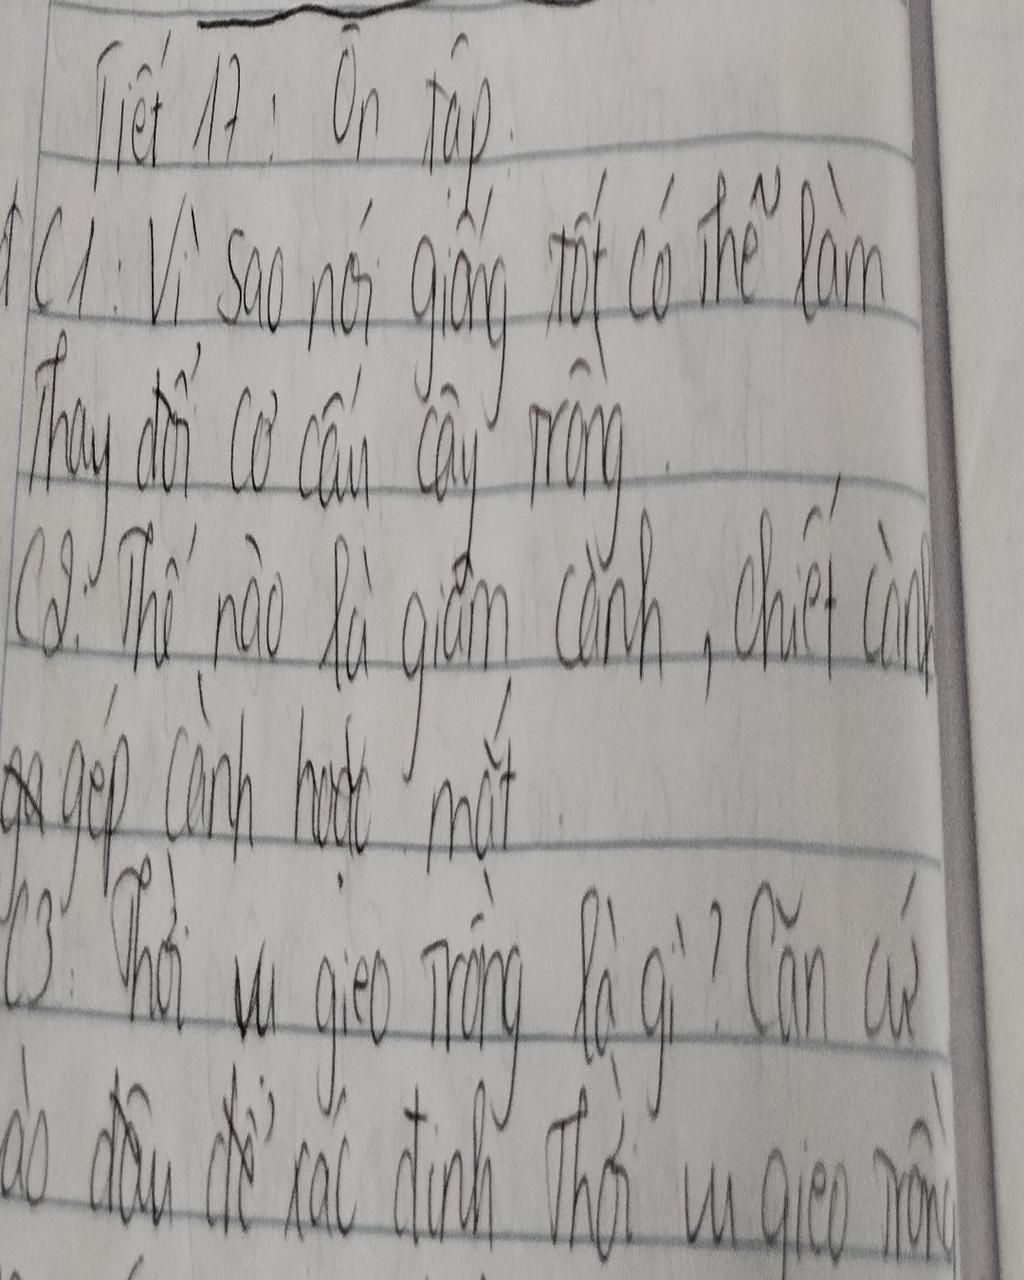 Tiết 17: Ôn tập.
C1: Vì sao nói giống tốt có thể làm
Thay đổi cơ cấu cây trồng.
C2: Thế nào là giâm cành, chiết cành
gép cành hoặc mắt.
C3: Thời vụ gieo trồng là gì? Căn cứ
ào đâu để xác định Thời vụ gieo trồng